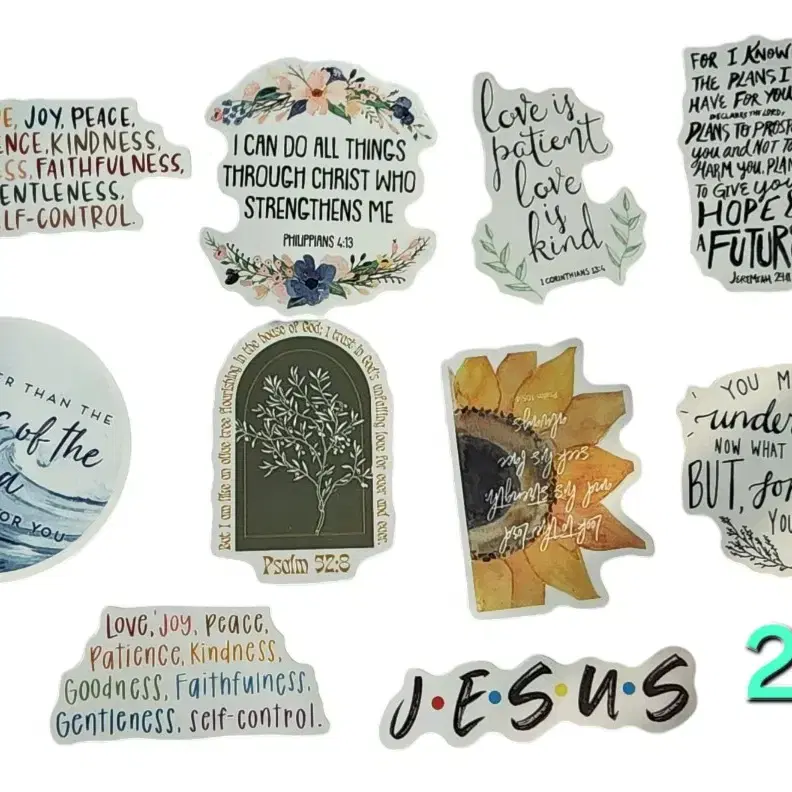 E, JOY, PEACE,
ENCE, KINDNESS,
ESS, FAITHFULNESS,
ENTLENESS,
LF-CONTROL.
I CAN DO ALL THINGS
THROUGH CHRIST WHO
STRENGTHENS ME
PHILIPPIANS 4:13
love is
patient
love
is
kind
1 CORINTHIANS 13:4
FOR I KNOW
THE PLANS I
HAVE FOR YOU
DECLARES THE LORD,
PLANS TO PROSP
you and NOT TO
HARM YOU, PLAN
TO GIVE you
HOPE &
A FUTUR
JEREMIAH 29:11
ER THAN THE
of the
FOR YOU
But I am like an olive tree flourishing in the house of God; I trust in God's unfailing love for ever and ever.
Psalm 52:8
Look to the Lord
and his strength
seek his face
always
Psalm 105:4
YOU M
under
NOW WHAT
BUT, for
YO
Love, Joy, Peace,
Patience, Kindness,
Goodness, Faithfulness,
Gentleness, self-control.
J•E•S•U•S
2